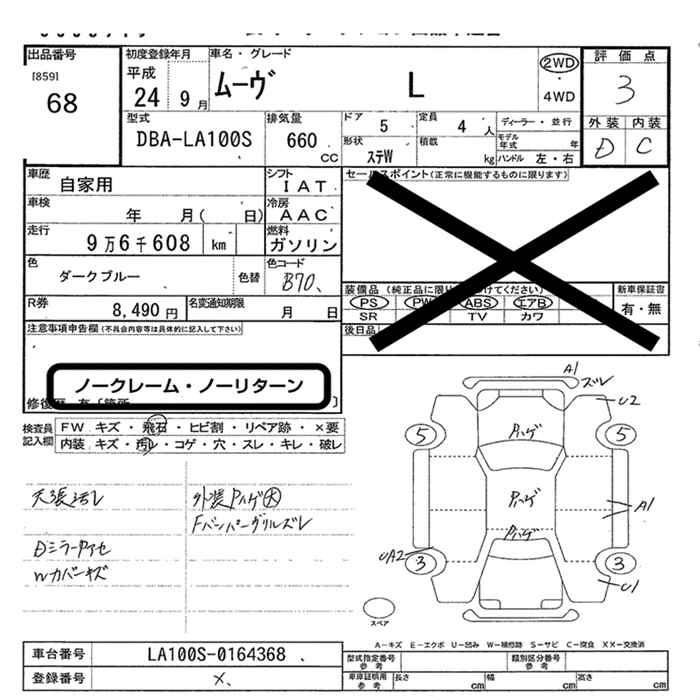 出品番号
[859]
68
初度登録年月
平成
24 9月
車名・グレード
ムーヴ L
2WD
・
4WD
評価点
3
外装 内装
D C
型式
DBA-LA100S
排気量
660
CC
ドア
5
定員
4人
ディーラー・並行
形状
ステW
積載
kg
モデル年式 年
ハンドル 左・右
車歴
自家用
シフト
IAT
車検
年 月( 日)
冷房
AAC
走行
9万6千608 km
燃料
ガソリン
色
ダークブルー
色替
色コード
B70、
R券
8,490円
名変通知期限
月 日
セールスポイント(正常に機能するものに限ります)
PS PW ABS エアB
SR TV カワ
後日品
新車保証書
有・無
注意事項申告欄(不具合内容等は具体的に記入して下さい)
ノークレーム・ノーリターン
検査員記入欄
FW キズ・飛石・ヒビ割・リペア跡・×要
内装 キズ・汚レ・コゲ・穴・スレ・キレ・破レ
天張汚レ
外装Pハゲ大
Fバンパーグリルズレ
Dミラーウァセ
Wカバーキズ
A1
ズレ
U2
5
5
Pハゲ
Pハゲ
Pハゲ
A1
UA2
3
3
U1
スペア
A-キズ E-エクボ U-凹み W-補修跡 S-サビ C-腐食 XX-交換済
車台番号
LA100S-0164368、
登録番号
×、
型式指定番号
参考
類別区分番号
参考
車庫証明用
参考
長さ cm
幅 cm
高さ cm